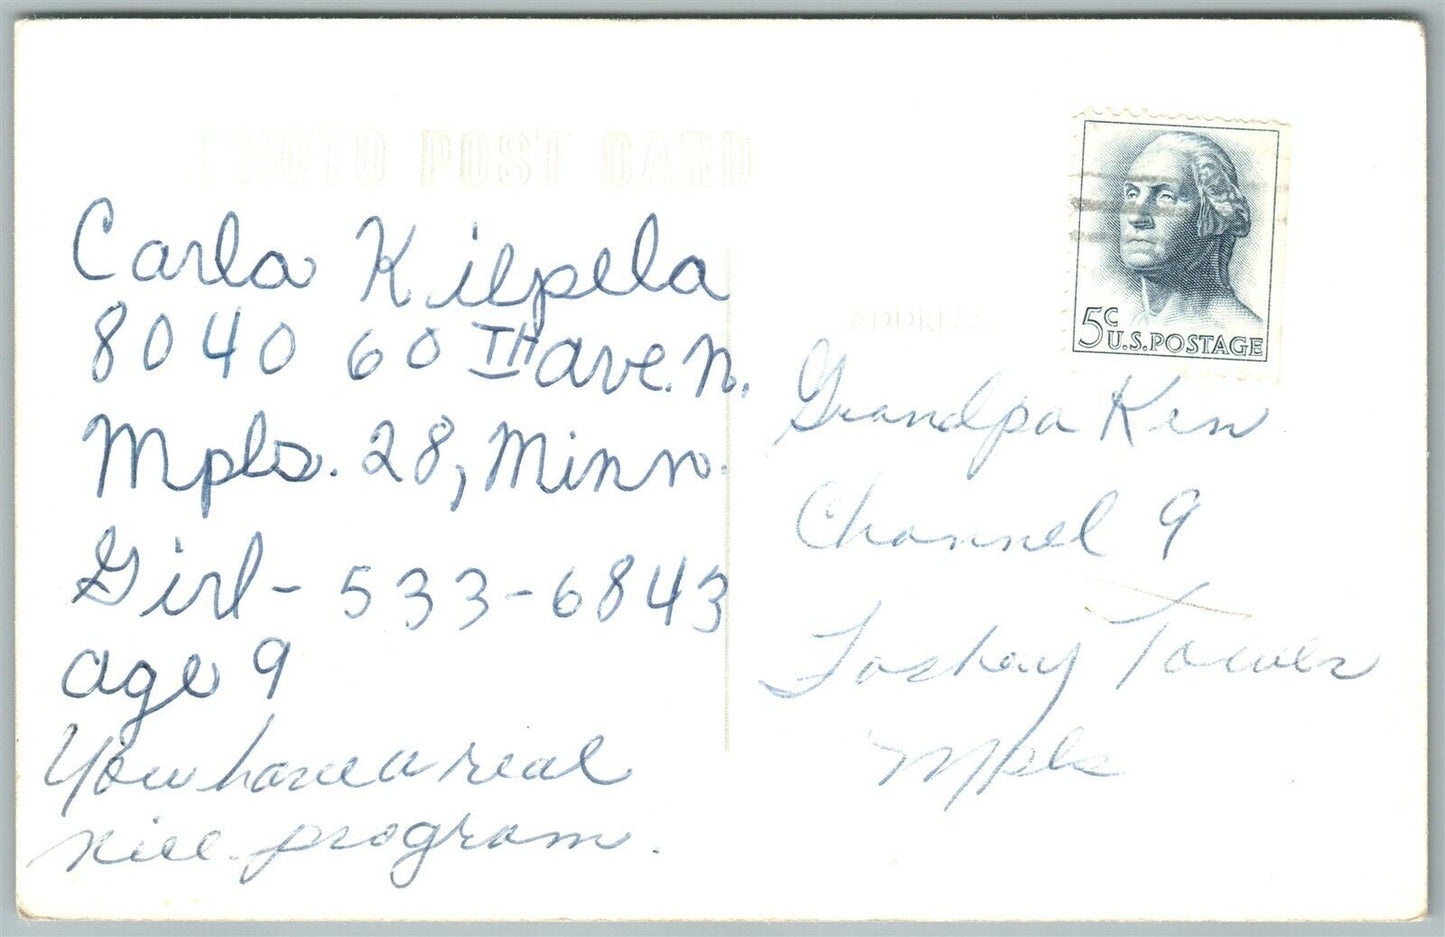 PHOTO POST CARD
Carla Kilpela
8040 60TH ave. N.
Mpls. 28, Minn.
Girl - 533-6843
age 9
You have a real
nice program.
ADDRESS
5c
U.S. POSTAGE
Grandpa Ken
Channel 9
Foshay Tower
Mpls